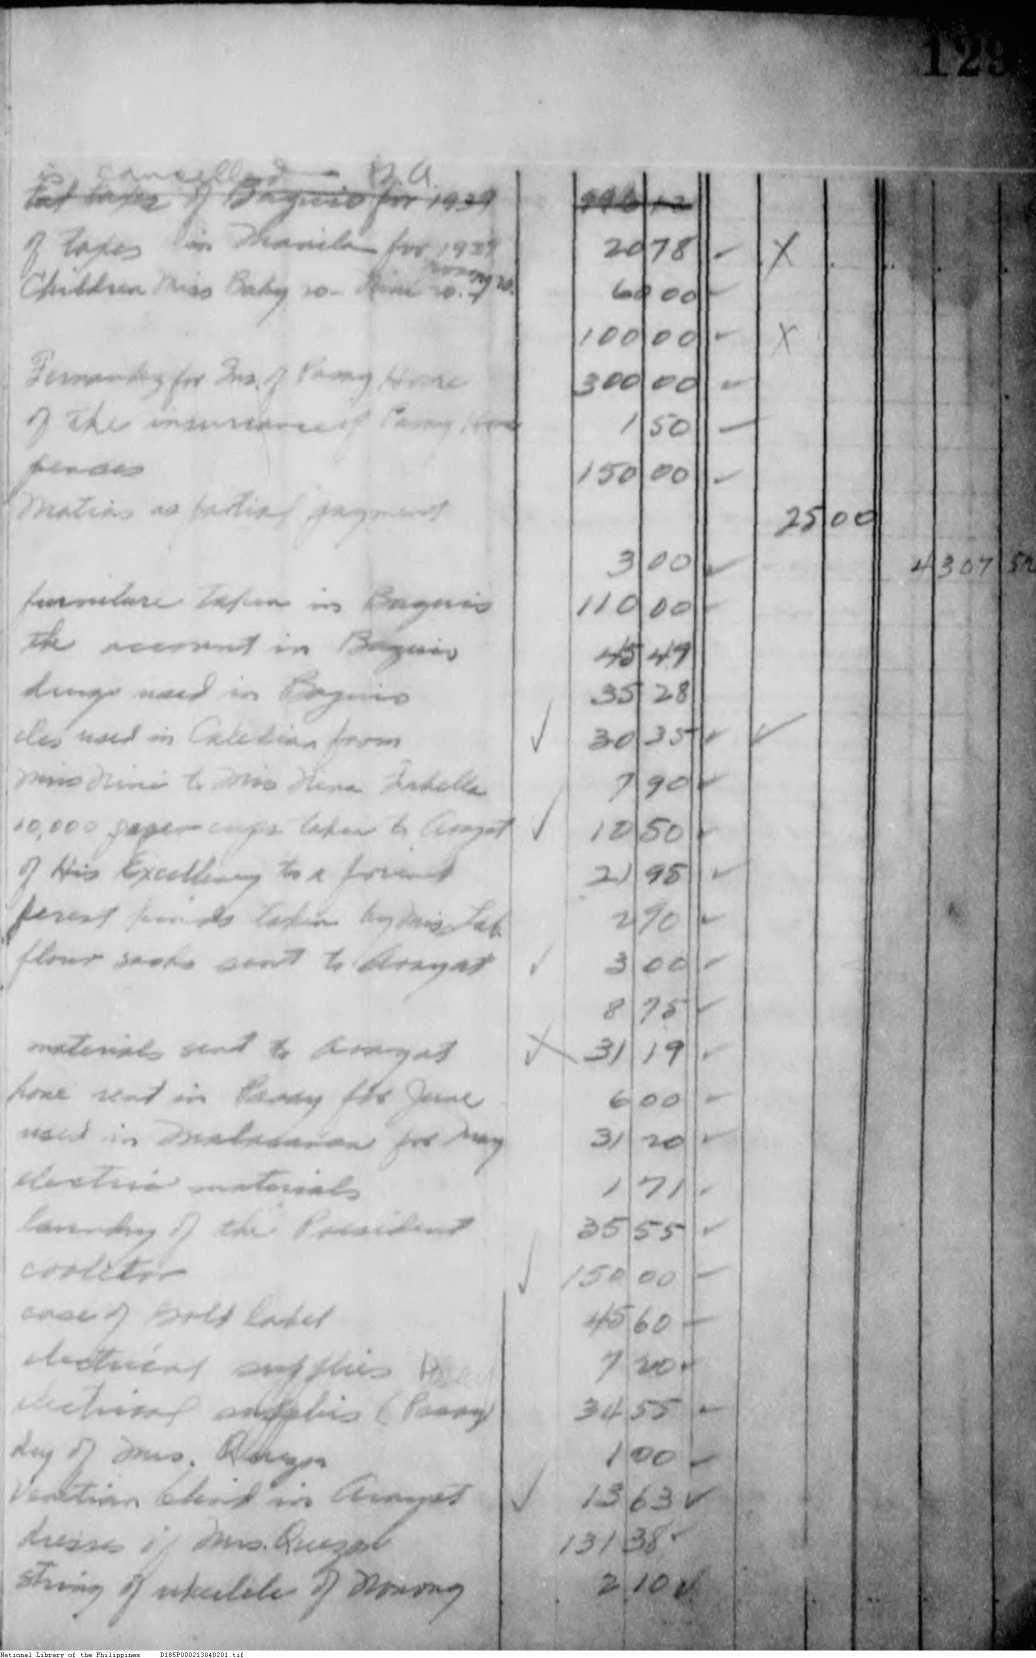 129
is cancelled - B.A.
of Baguio for 1939 996 12
of taxes in Manila for 1939 20 78 ✓ X
Children Miss Baby 20- Nini 20. Nonong 20. 60 00 ✓
100 00 ✓ X
Fernandez for Ins. of Pasay House 300 00 ✓
of the insurance of Pasay House 1 50
penses 150 00 ✓
Matias as partial payment 25 00
3 00 ✓ 4307 52
furniture taken in Baguio 110 00 ✓
the account in Baguio 45 49
drugs used in Baguio 35 28
cles used in from ✓ 30 35 ✓ ✓
Miss Nini to Mis 7 90 ✓
10,000 paper cups taken to Arayat ✓ 10 50 ✓
of His Excellency to a friend 21 95 ✓
ferent taken by Mis 2 90 ✓
flour sacks sent to Arayat ✓ 3 00 ✓
8 75 ✓
materials sent to Arayat X 31 19 ✓
hone rent in Pasay for June 6 00 ✓
used in Malacañan for May 31 20 ✓
electric materials 1 71 ✓
laundry of the President 35 55 ✓
✓ 150 00 ✓
case of Gold Label 45 60
electrical supplies 7 20 ✓
electrical supplies (Pasay) 34 55 ✓
dry of Mrs. Quezon 1 00 ✓
Venetian blind in Arayat ✓ 13 63 ✓
dresses of Mrs. Quezon 131 38 ✓
string of ukelele of Nonong 2 10 ✓
National Library of the Philippines D185P000213040201.tif